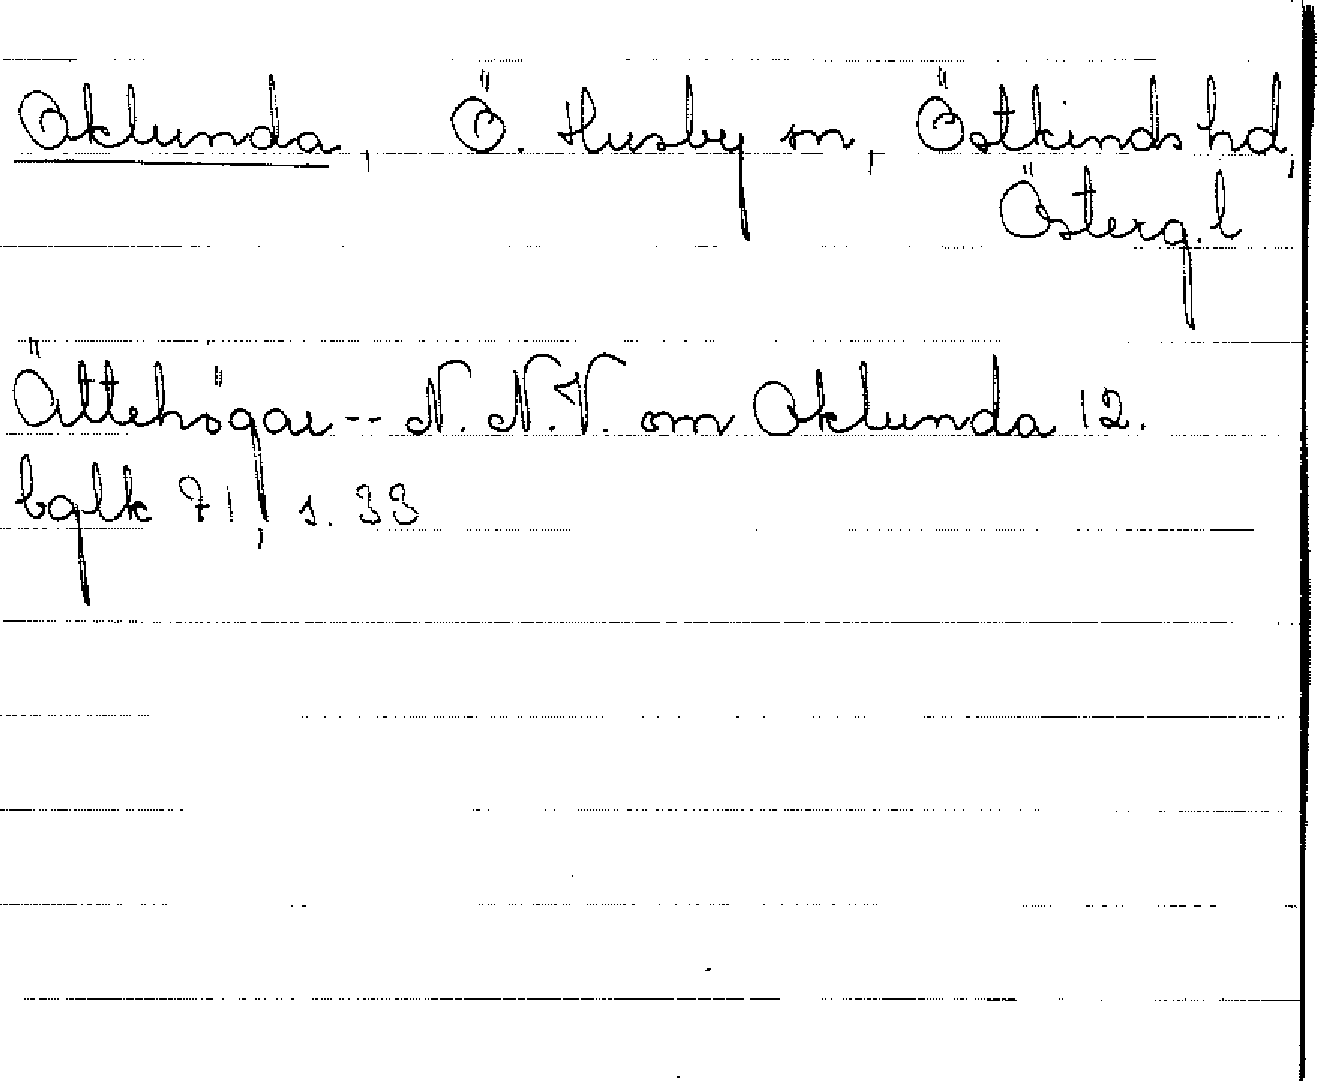 Oklunda, Ö. Husby sn, Östkinds hd,
Österg. l
Ättehögar -- N. N.V. om Oklunda 12.
bglk 71, s. 33